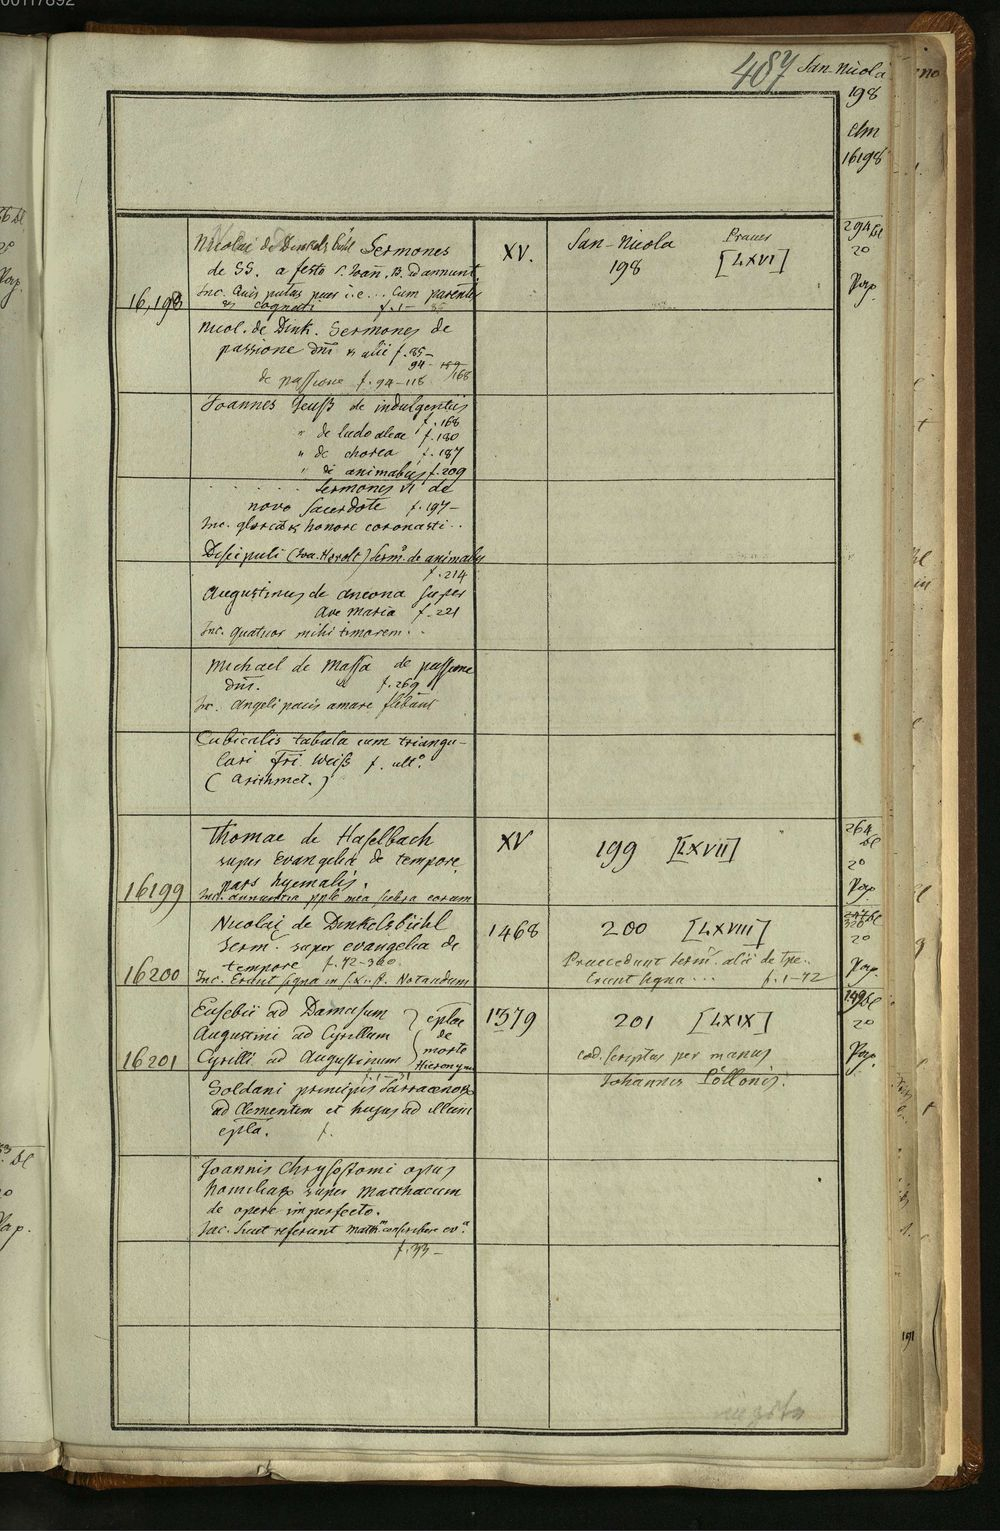 00117892
487 San-Nicola
198
Clm
16198
16,198
Nicolai de Dinkelsbühl Sermones
de SS. a festo S. Joan. B. d
Inc. Quis putas puer i.e... Cum parentes
et cognati f. 1- 85
XV.
San-Nicola
198
[LXVI]
294 Bl
2o
Pap.
Nicol. de Dink. Sermones de
passione dni et alii f. 85-
94- 168
de passione f. 94-118
Joannes Geuß de indulgentiis
f. 168
" de ludo aleae f. 180
" de chorea f. 187
" de animabus f. 209
Sermones VI de
novo Sacerdote f. 197-
Inc. gloria et honore coronasti..
Discipuli (Joa. Herolt) Serm. de animabus
f. 214
Augustinus de Ancona super
Ave Maria f. 221
Inc. Quatuor mihi timorem..
Michael de Massa de passione
dni. f. 269
Inc. Angeli pacis amare flebant
Cubicalis tabula cum triangu-
lari Fri. Weiß f. ult.o
(Arithmet.)
16199
Thomae de Haselbach
super Evangelia de tempore,
pars hyemalis.
Inc. Annuntia pplo meo scelera eorum
XV
199 [LXVII]
264
Bl
2o
Pap.
16200
Nicolai de Dinkelsbühl
Serm. super evangelia de
tempore f. 72-360.
Inc. Erunt signa in S. et L. Notandum
1468
200 [LXVIII]
Praecedunt serm. alii de tpe.
Erunt signa... f. 1-72
326
2o
Pap.
16201
Eusebii ad Damasum
Augustini ad Cyrillum
Cyrilli ad Augustinum
eplae
de
morte
Hieronymi
1379
201 [LXIX]
Cod. scriptus per manus
Johannis Söllonis.
149 Bl
2o
Pap.
Soldani principis Sarracenor.
ad Clementem et hujus ad illum
epla. f.
Joannis Chrysostomi opus
homiliar. super Matthaeum
de opere imperfecto.
Inc. Sicut referunt Matth.m conscribere ev.a
f. 33-